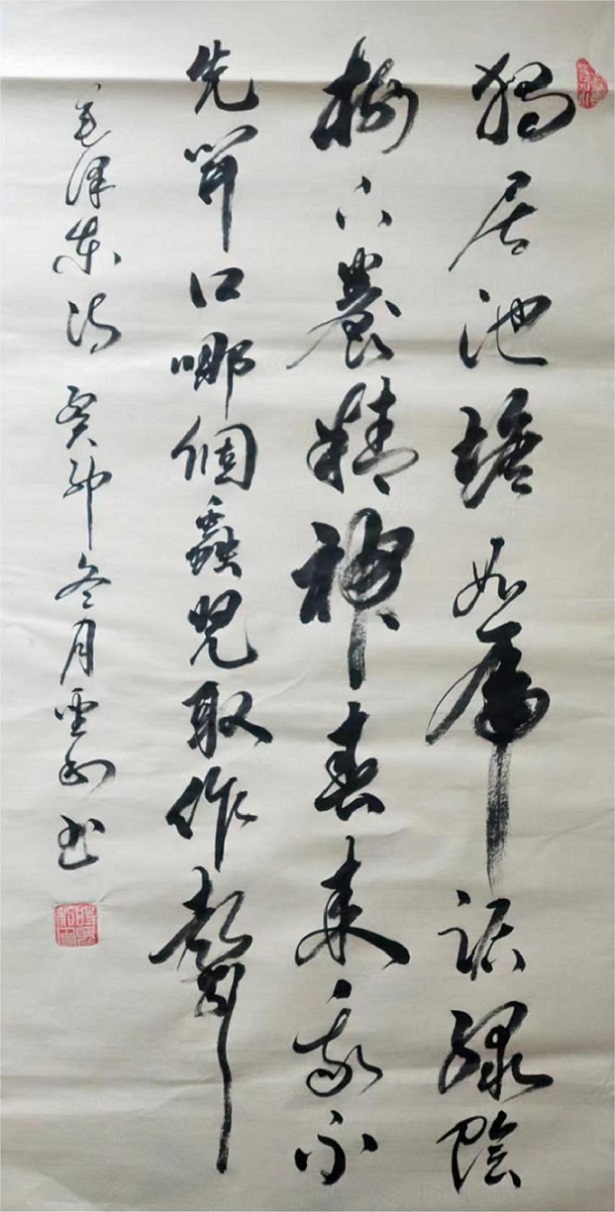 獨居池塘如虎踞綠陰
樹下養精神春來我不
先開口哪個蟲兒敢作聲
毛澤東詩 癸卯冬月雲书